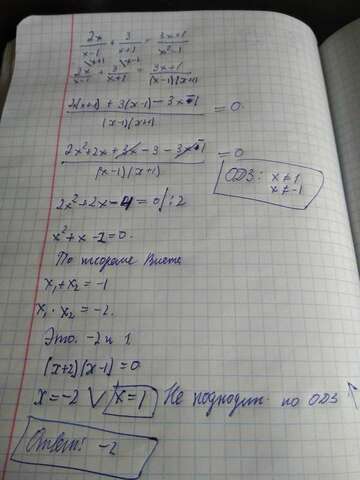 2x/x-1 + 3/x+1 = 3x+1/x²-1
2x/x-1 \x+1 + 3/x+1 \x-1 = 3x+1/(x-1)(x+1)
2x(x+1) + 3(x-1) - 3x-1/(x-1)(x+1) = 0
2x²+2x+3x-3-3x-1/(x-1)(x+1) = 0
ОДЗ: x≠1
x≠-1
2x²+2x-4=0/:2
x²+x-2=0.
По теореме Виета
x₁+x₂=-1
x₁·x₂=-2.
Это -2 и 1
(x+2)(x-1)=0
x=-2 ∨ x=1 Не подходит по ОДЗ
Ответ: -2